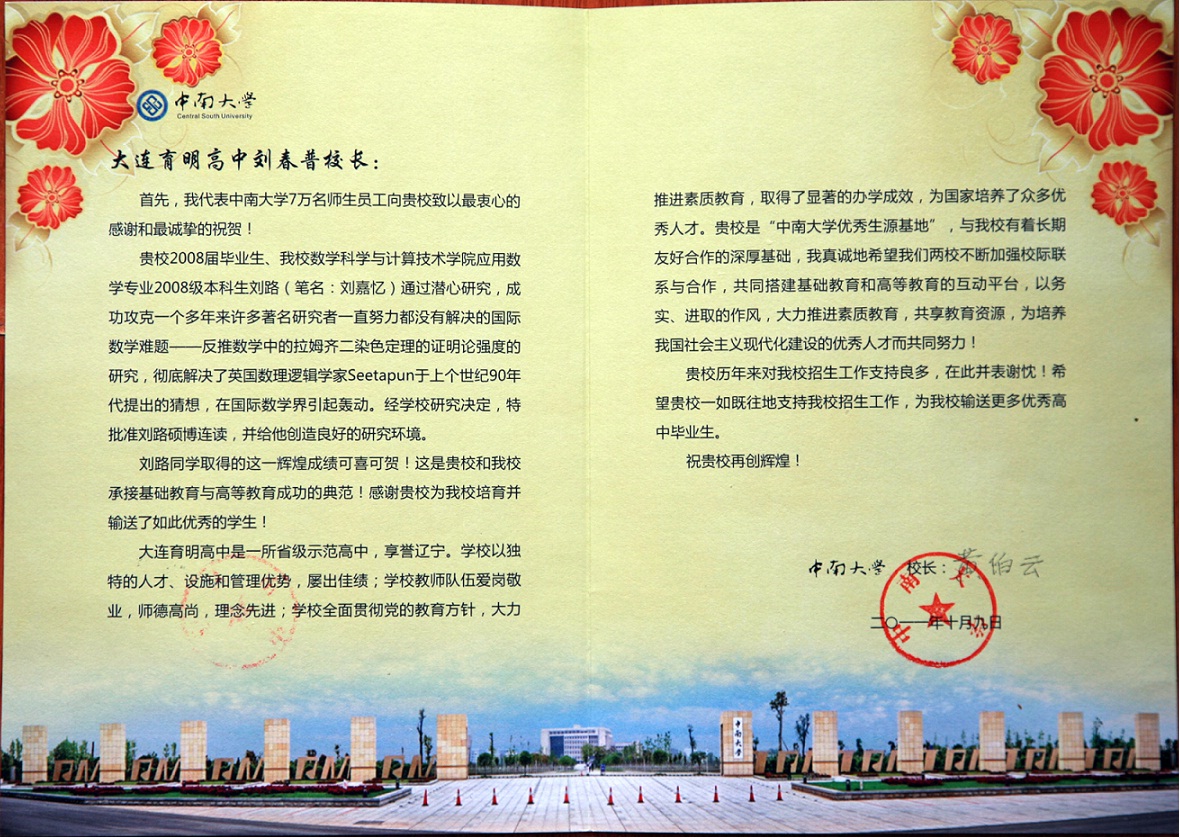 中南大学
Central South University
大连育明高中刘春普校长：
首先，我代表中南大学7万名师生员工向贵校致以最衷心的
感谢和最诚挚的祝贺！
贵校2008届毕业生、我校数学科学与计算技术学院应用数
学专业2008级本科生刘路（笔名：刘嘉忆）通过潜心研究，成
功攻克一个多年来许多著名研究者一直努力都没有解决的国际
数学难题——反推数学中的拉姆齐二染色定理的证明论强度的
研究，彻底解决了英国数理逻辑学家Seetapun于上个世纪90年
代提出的猜想，在国际数学界引起轰动。经学校研究决定，特
批准刘路硕博连读，并给他创造良好的研究环境。
刘路同学取得的这一辉煌成绩可喜可贺！这是贵校和我校
承接基础教育与高等教育成功的典范！感谢贵校为我校培育并
输送了如此优秀的学生！
大连育明高中是一所省级示范高中，享誉辽宁。学校以独
特的人才、设施和管理优势，屡出佳绩；学校教师队伍爱岗敬
业，师德高尚，理念先进；学校全面贯彻党的教育方针，大力
推进素质教育，取得了显著的办学成效，为国家培养了众多优
秀人才。贵校是“中南大学优秀生源基地”，与我校有着长期
友好合作的深厚基础，我真诚地希望我们两校不断加强校际联
系与合作，共同搭建基础教育和高等教育的互动平台，以务
实、进取的作风，大力推进素质教育，共享教育资源，为培养
我国社会主义现代化建设的优秀人才而共同努力！
贵校历年来对我校招生工作支持良多，在此并表谢忱！希
望贵校一如既往地支持我校招生工作，为我校输送更多优秀高
中毕业生。
祝贵校再创辉煌！
中南大学 校长：黄伯云
二〇一一年十月九日
中南大学
中南大学